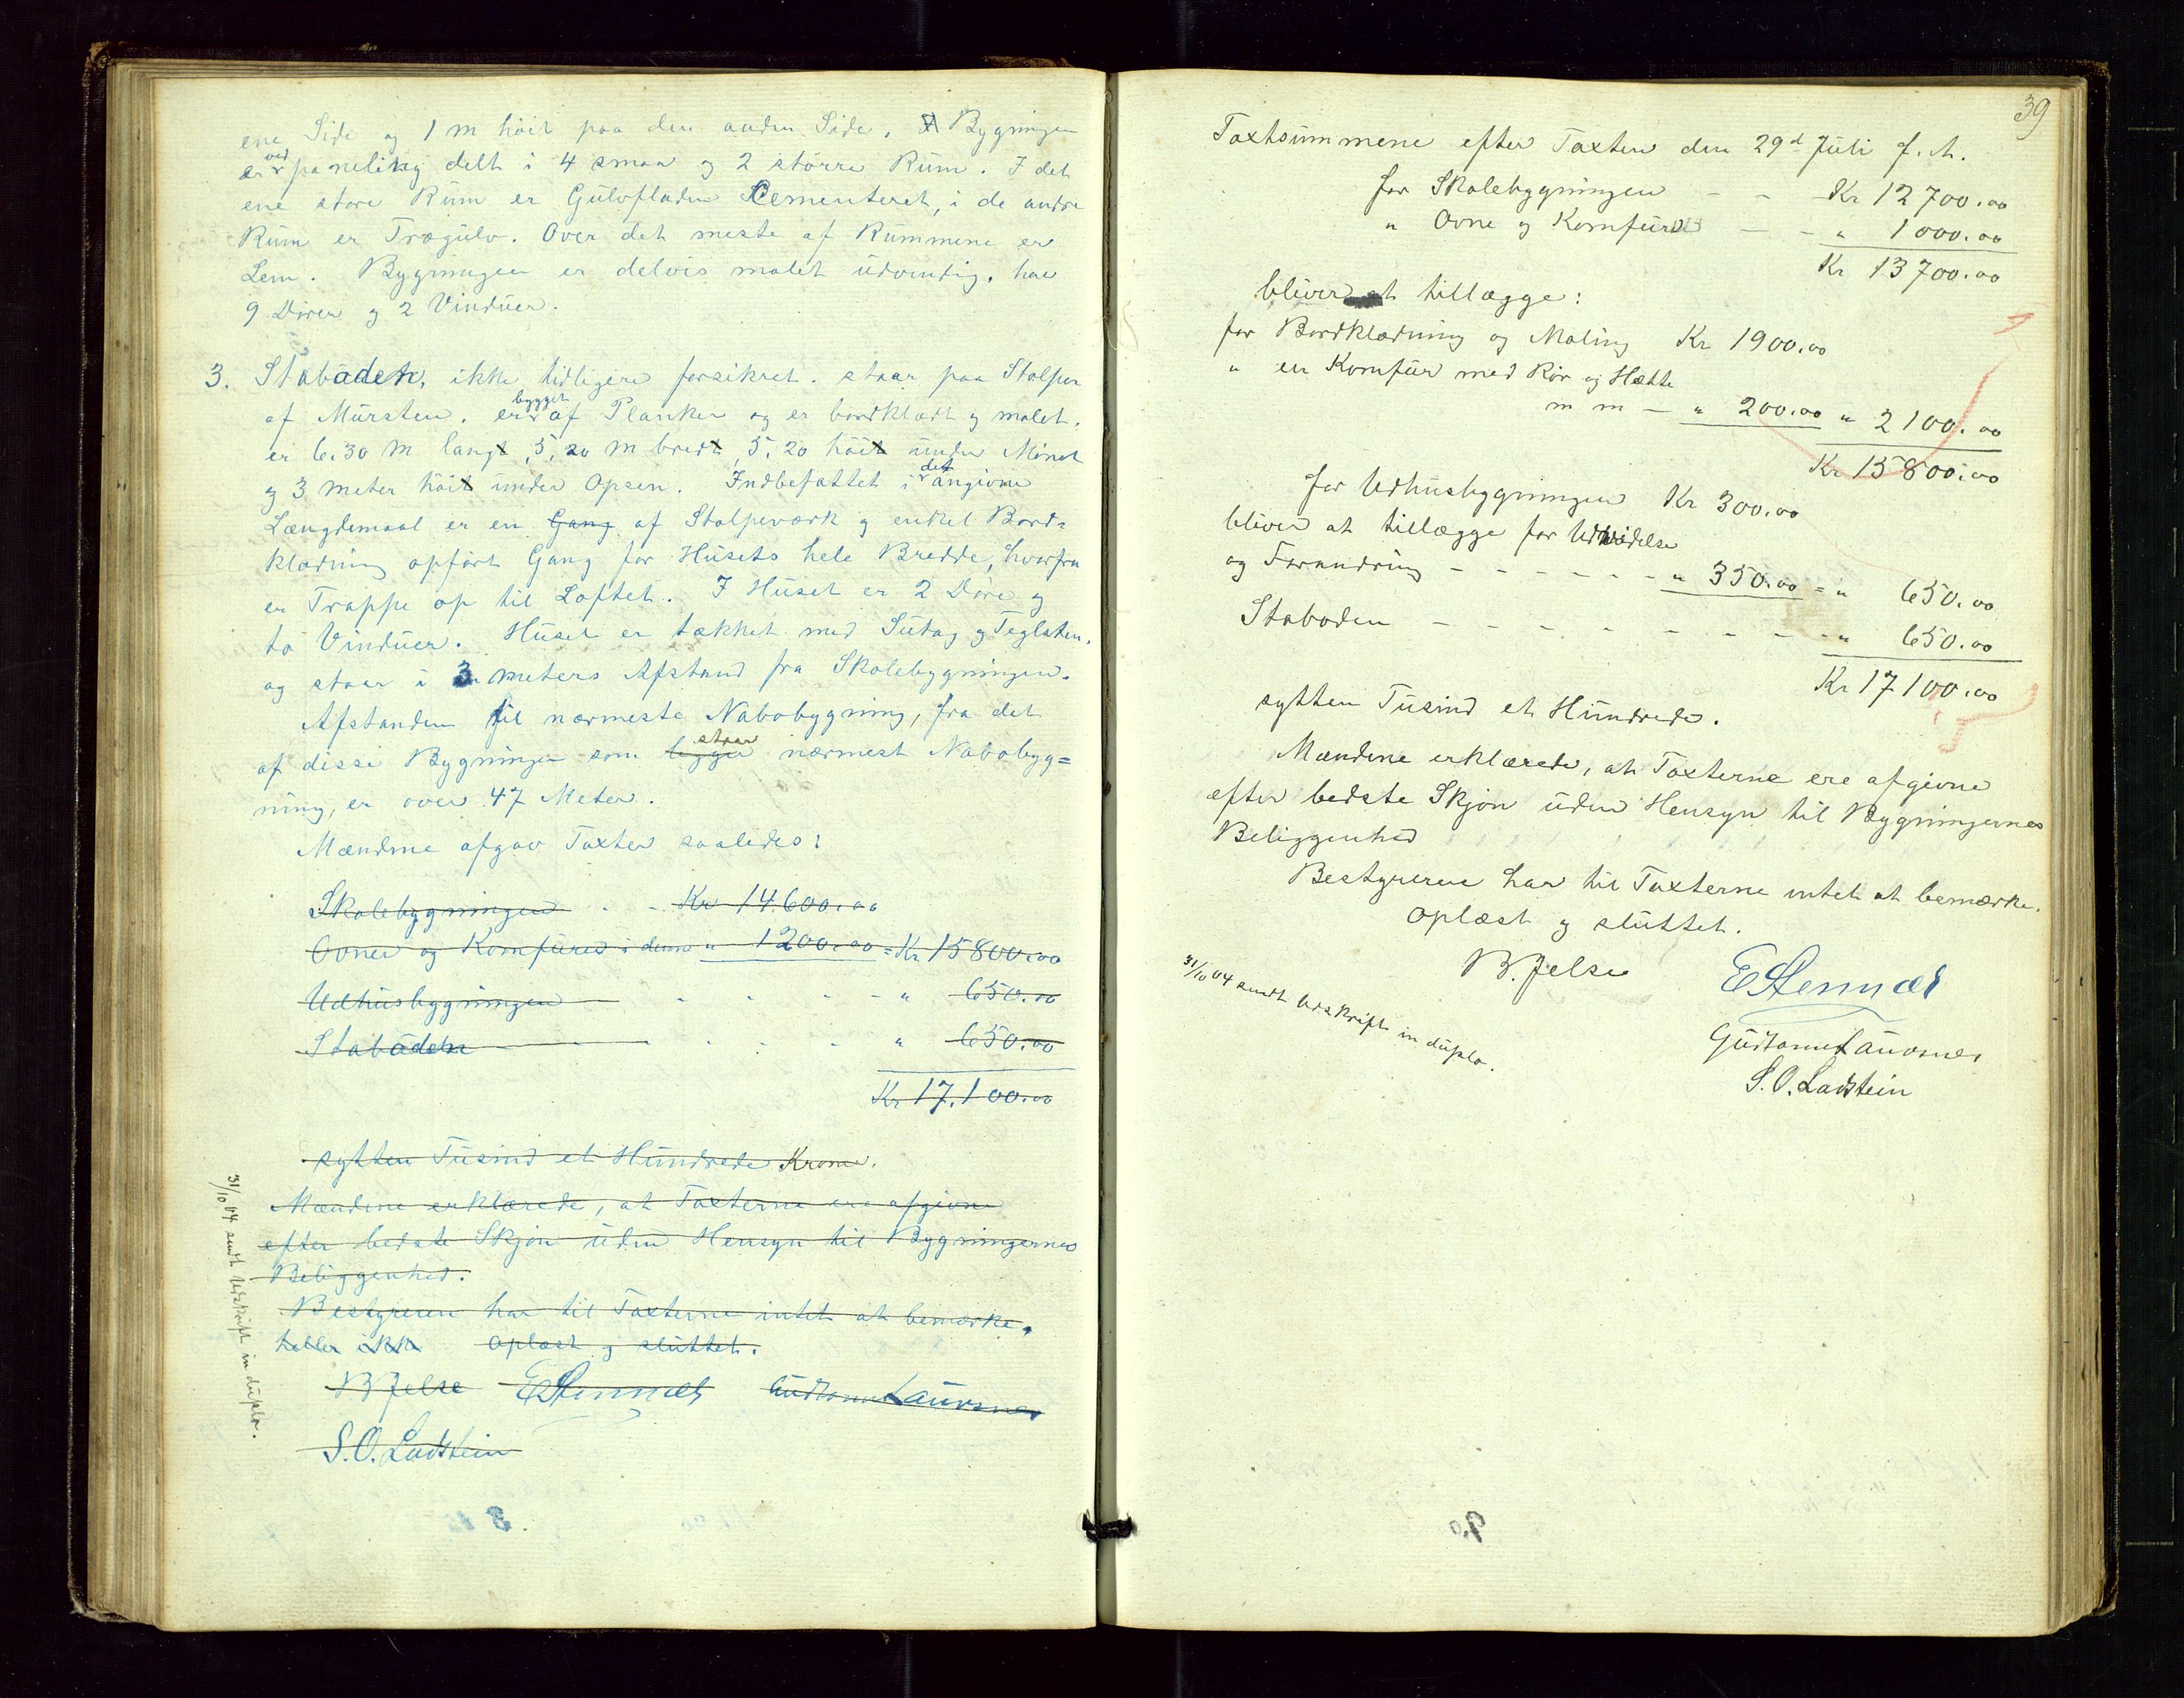 ene Side og 1 m höit paa den anden Side. Bygningen
er ved paneling delt i 4 smaa og 2 större Rum. I det
ene store Rum er Gulvfladen Cementeret, i de andre
Rum er Trægulv. Over det meste af Rummene er
Lem. Bygningen er delvis malet udvendig, har
9 Dörer og 2 Vinduer.
3. Stabuden, ikke tidligere forsikret. staar paa Stolper
af Mursten. er bygget af Planker og er bordklædt og malet.
er 6.30 m lang, 5,20 m bred, 5,20 höi under Mönet
og 3 meter höi under Opsen. Indbefattet i det angivne
Længdemaal er en Gang af Stolpeværk og enkel Bord-
klædning opfört Gang for Husets hele Bredde, hvorfra
er Trappe op til Loftet. I Huset er 2 Döre og
to Vinduer. Huset er tækket med Sutag og Teglsten.
og staar i 3 meters Afstand fra Skolebygningen.
Afstanden til nærmeste Nabobygning, fra det
af disse Bygninger som ligger staar nærmest Nabobyg=
ning, er over 47 Meter.
Mændene afgav Taxter saaledes:
Skolebygningen - - Kr 14.600.00
Ovner og Komfurer i denne " 1200.00 = Kr 15800.00
Udhusbygningen - - - - " 650.00
Stabuden - - - - " 650.00
Kr 17.100.00
sytten Tusind et Hundrede Krone.
Mændene erklærede, at Taxterne ere afgivne
efter bedste Skjön uden Hensyn til Bygningernes
Beliggenhed.
Bestyreren har til Taxterne intet at bemærke.
heller ikke Oplæst og sluttet.
B Jelse E Stennæs Gudtorm Laursnes
S. O. Ladstein
31/10 04 sendt Udskrift in duplo.
39
Taxtsummene efter Taxten den 29d Juli f. A.
for Skolebygningen - - Kr 12700.00
" Ovne og Komfure - - " 1000.00
Kr 13700.00
bliver at tillægge:
for Bordklædning og Maling Kr 1900.00
" en Komfur med Rör og Hætte
m m - " 200.00 " 2100.00
Kr 15800.00
for Udhusbygningen Kr 300.00
bliver at tillægge for Udvidelse
og Forandring - - - - - - " 350.00 = " 650.00
Staboden - - - - - - - - " 650.00
Kr 17100.00
sytten Tusind et Hundrede.
Mændene erklærede, at Taxterne ere afgivne
efter bedste Skjön uden Hensyn til Bygningernes
Beliggenhed
Bestyreren har til Taxterne intet at bemærke.
Oplæst og sluttet.
B. Jelse E Stennæs
31/10 04 sendt Udskrift in duplo.
Gudtorm Laursnes
S. O. Ladstein